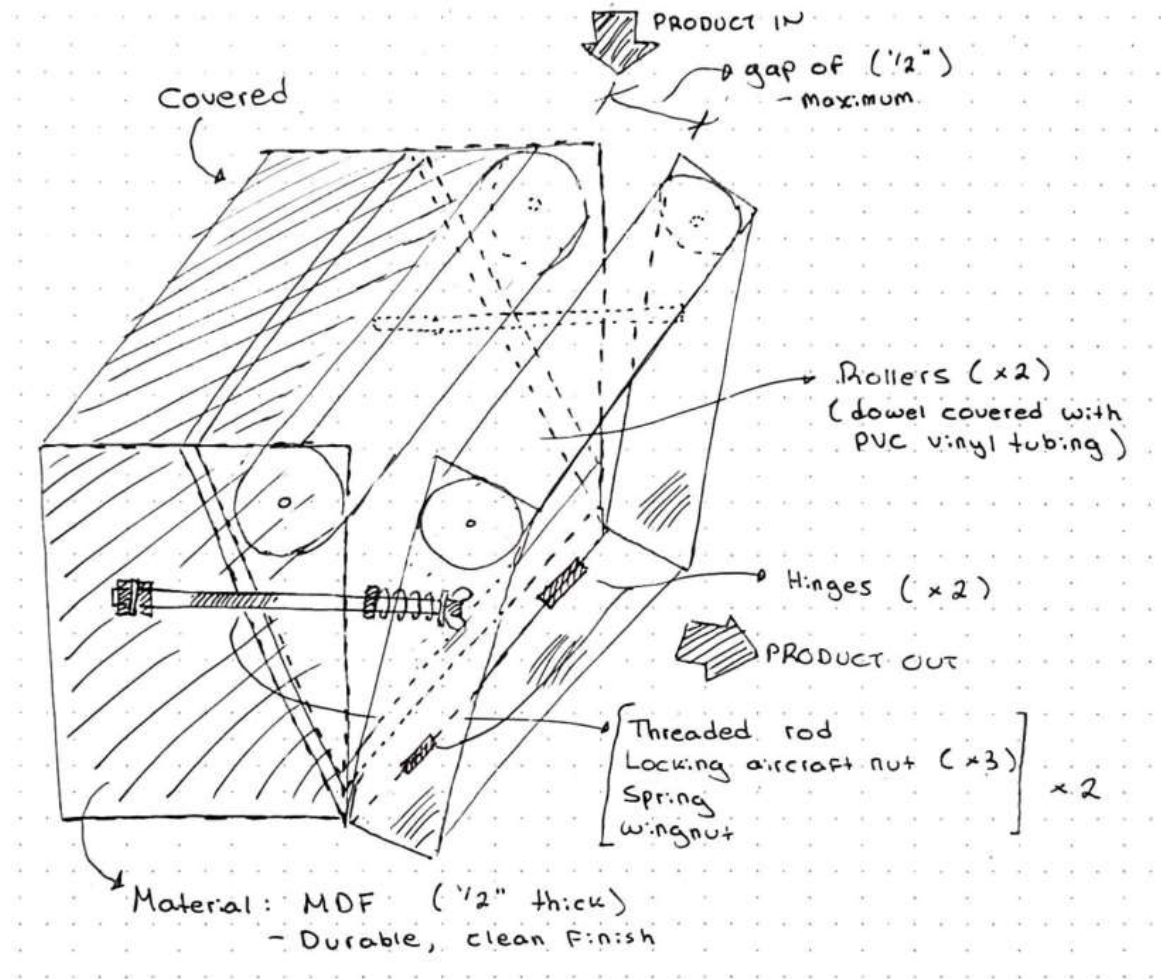 PRODUCT IN
gap of (1/2")
- maximum
Covered
Rollers (x2)
(dowel covered with
PVC vinyl tubing)
Hinges (x2)
PRODUCT OUT
Threaded rod
Locking aircraft nut (x3)
Spring
wingnut
x2
Material: MDF (1/2" thick)
- Durable, clean finish